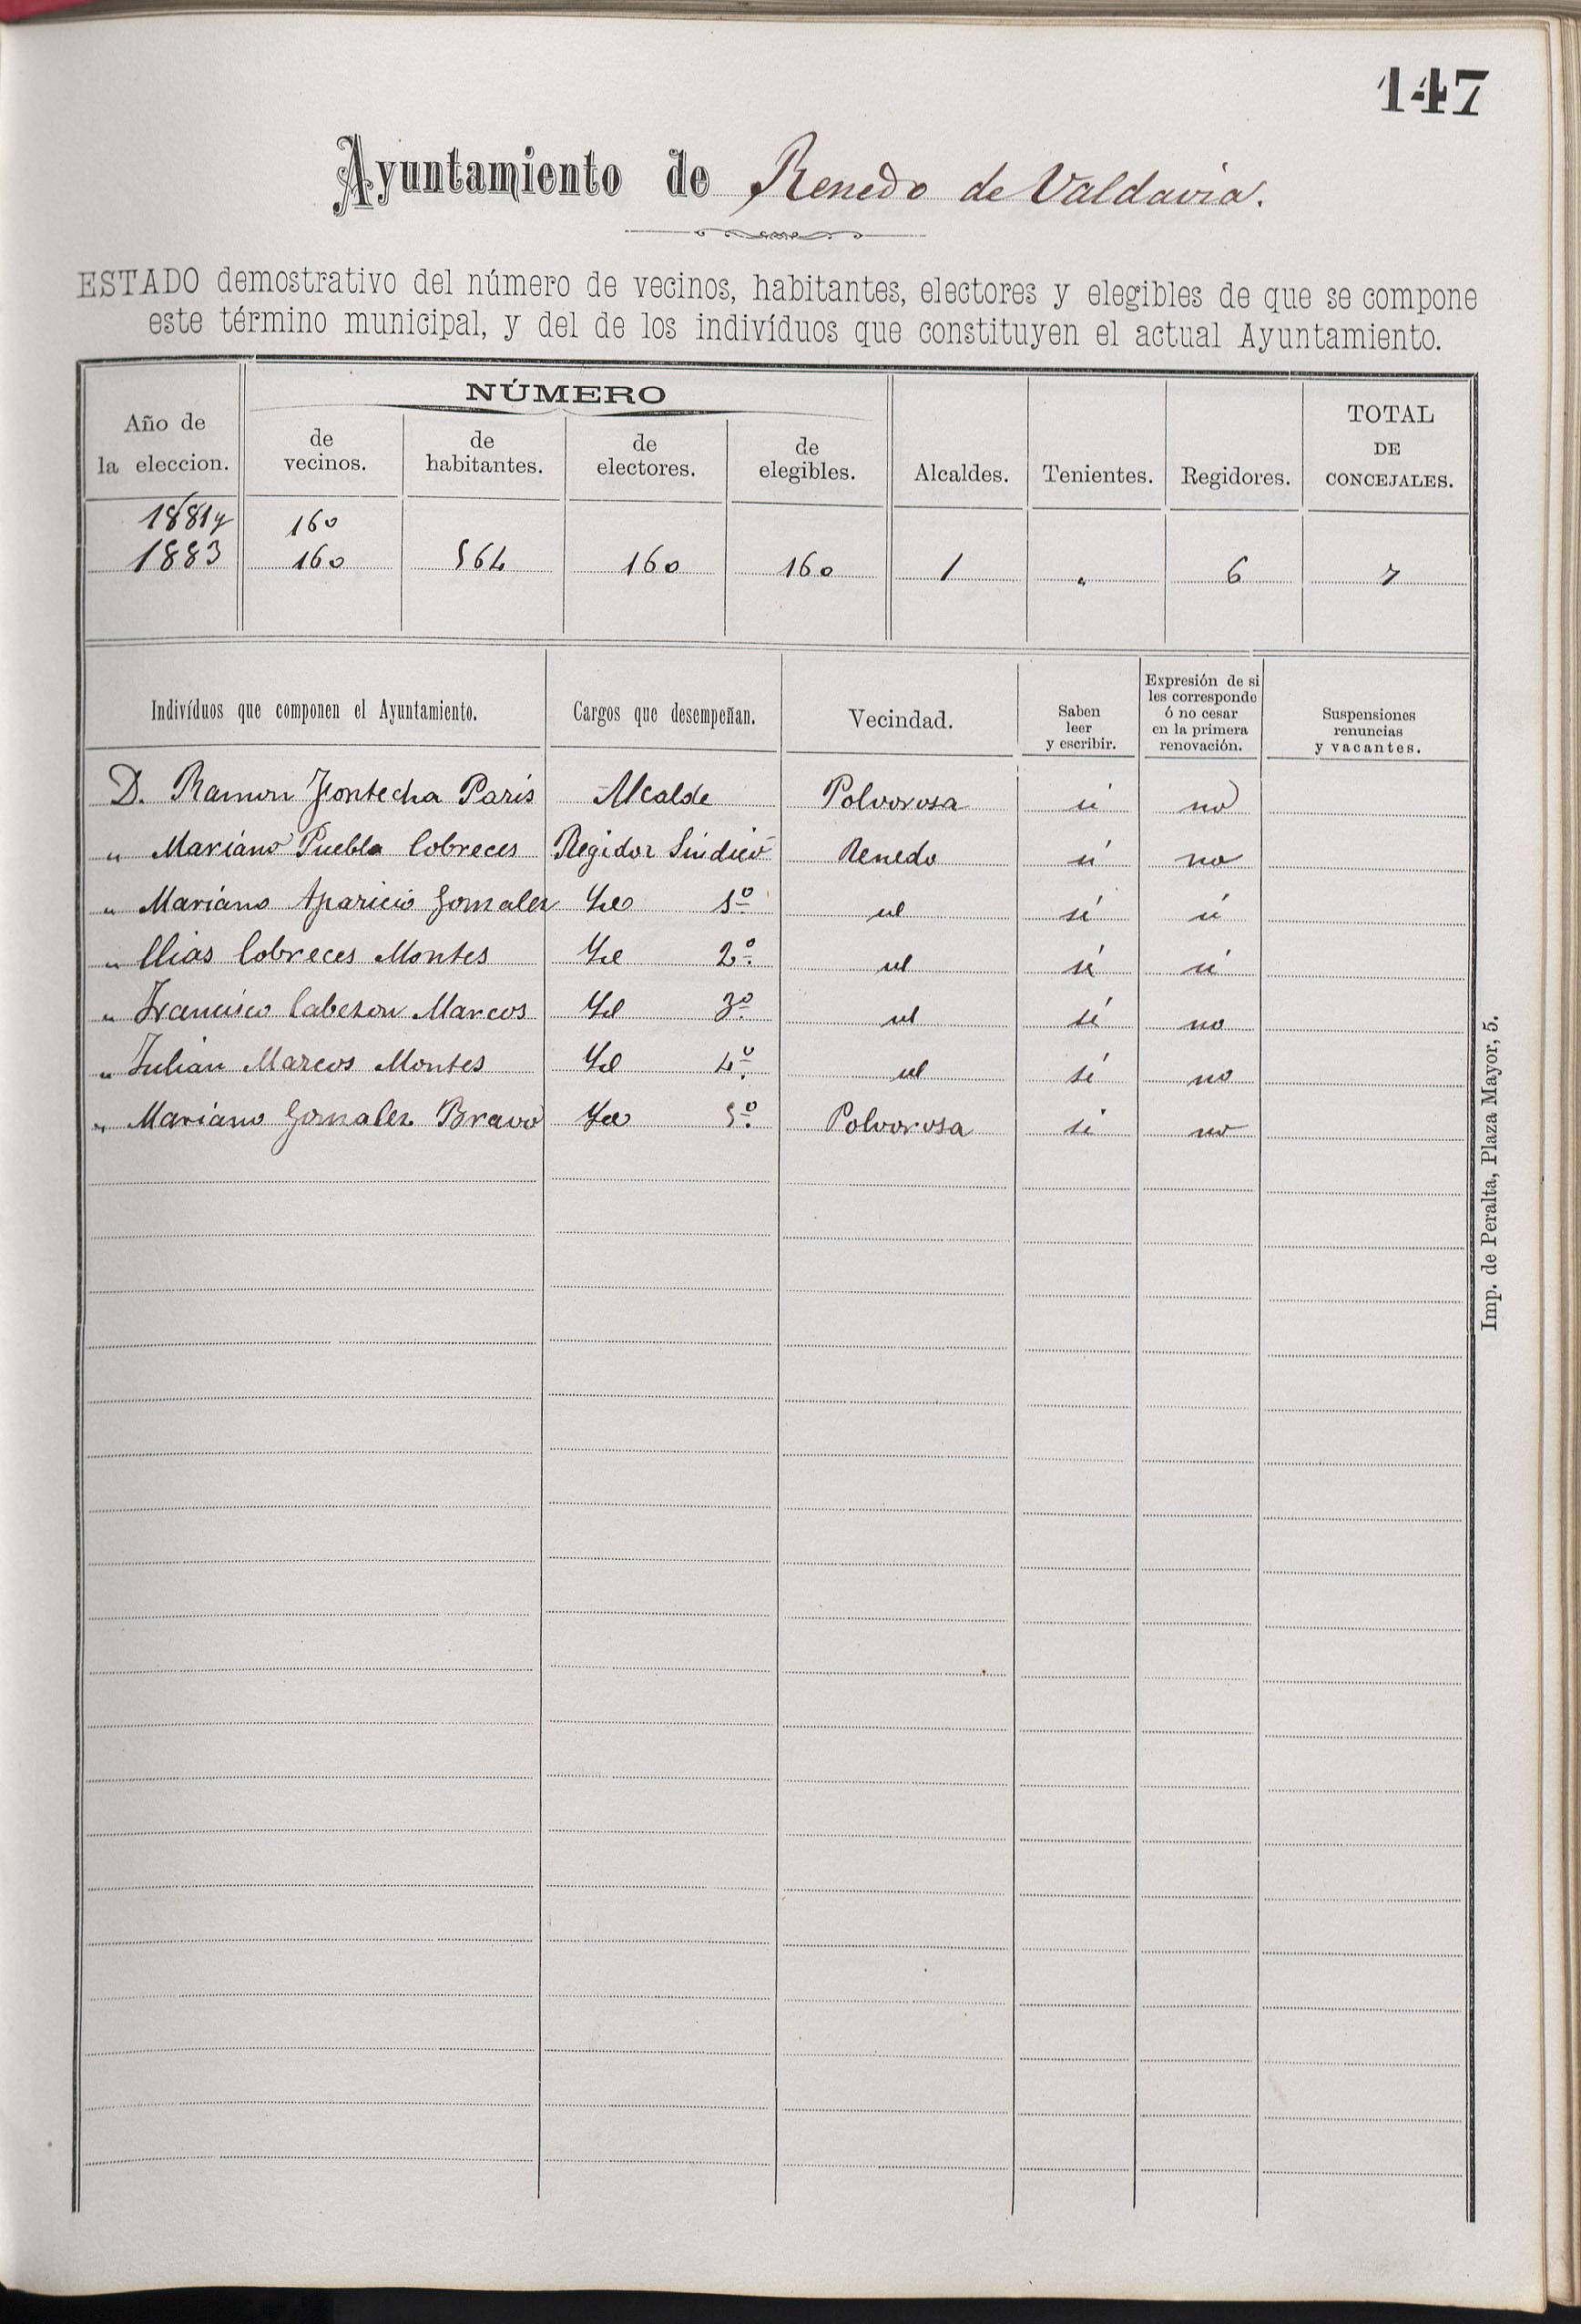 147
Ayuntamiento de Renedo de Valdavia.
ESTADO demostrativo del número de vecinos, habitantes, electores y elegibles de que se compone
este término municipal, y del de los indivíduos que constituyen el actual Ayuntamiento.
Año de la eleccion. NÚMERO de vecinos. de habitantes. de electores. de elegibles. Alcaldes. Tenientes. Regidores. TOTAL DE CONCEJALES.
1881 y 160
1883 160 564 160 160 1 " 6 7
Indivíduos que componen el Ayuntamiento. Cargos que desempeñan. Vecindad. Saben leer y escribir. Expresión de si les corresponde ó no cesar en la primera renovación. Suspensiones renuncias y vacantes.
D. Ramon Fontecha Paris Alcalde Polvorosa si no
" Mariano Puebla Cobreces Regidor Sindico Renedo si no
" Mariano Aparicio Gonzalez Id 1º id si si
" Elias Cobreces Montes Id 2º id si si
" Francisco Cabezon Marcos Id 3º id si no
" Julian Marcos Montes Id 4º id si no
" Mariano Gonzalez Bravo Id 5º Polvorosa si no
Imp. de Peralta, Plaza Mayor, 5.